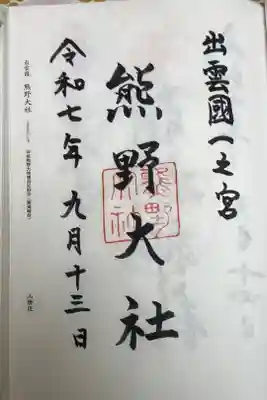 出雲國一之宮
熊野大社
熊野大社
令和七年九月十三日
熊野大社